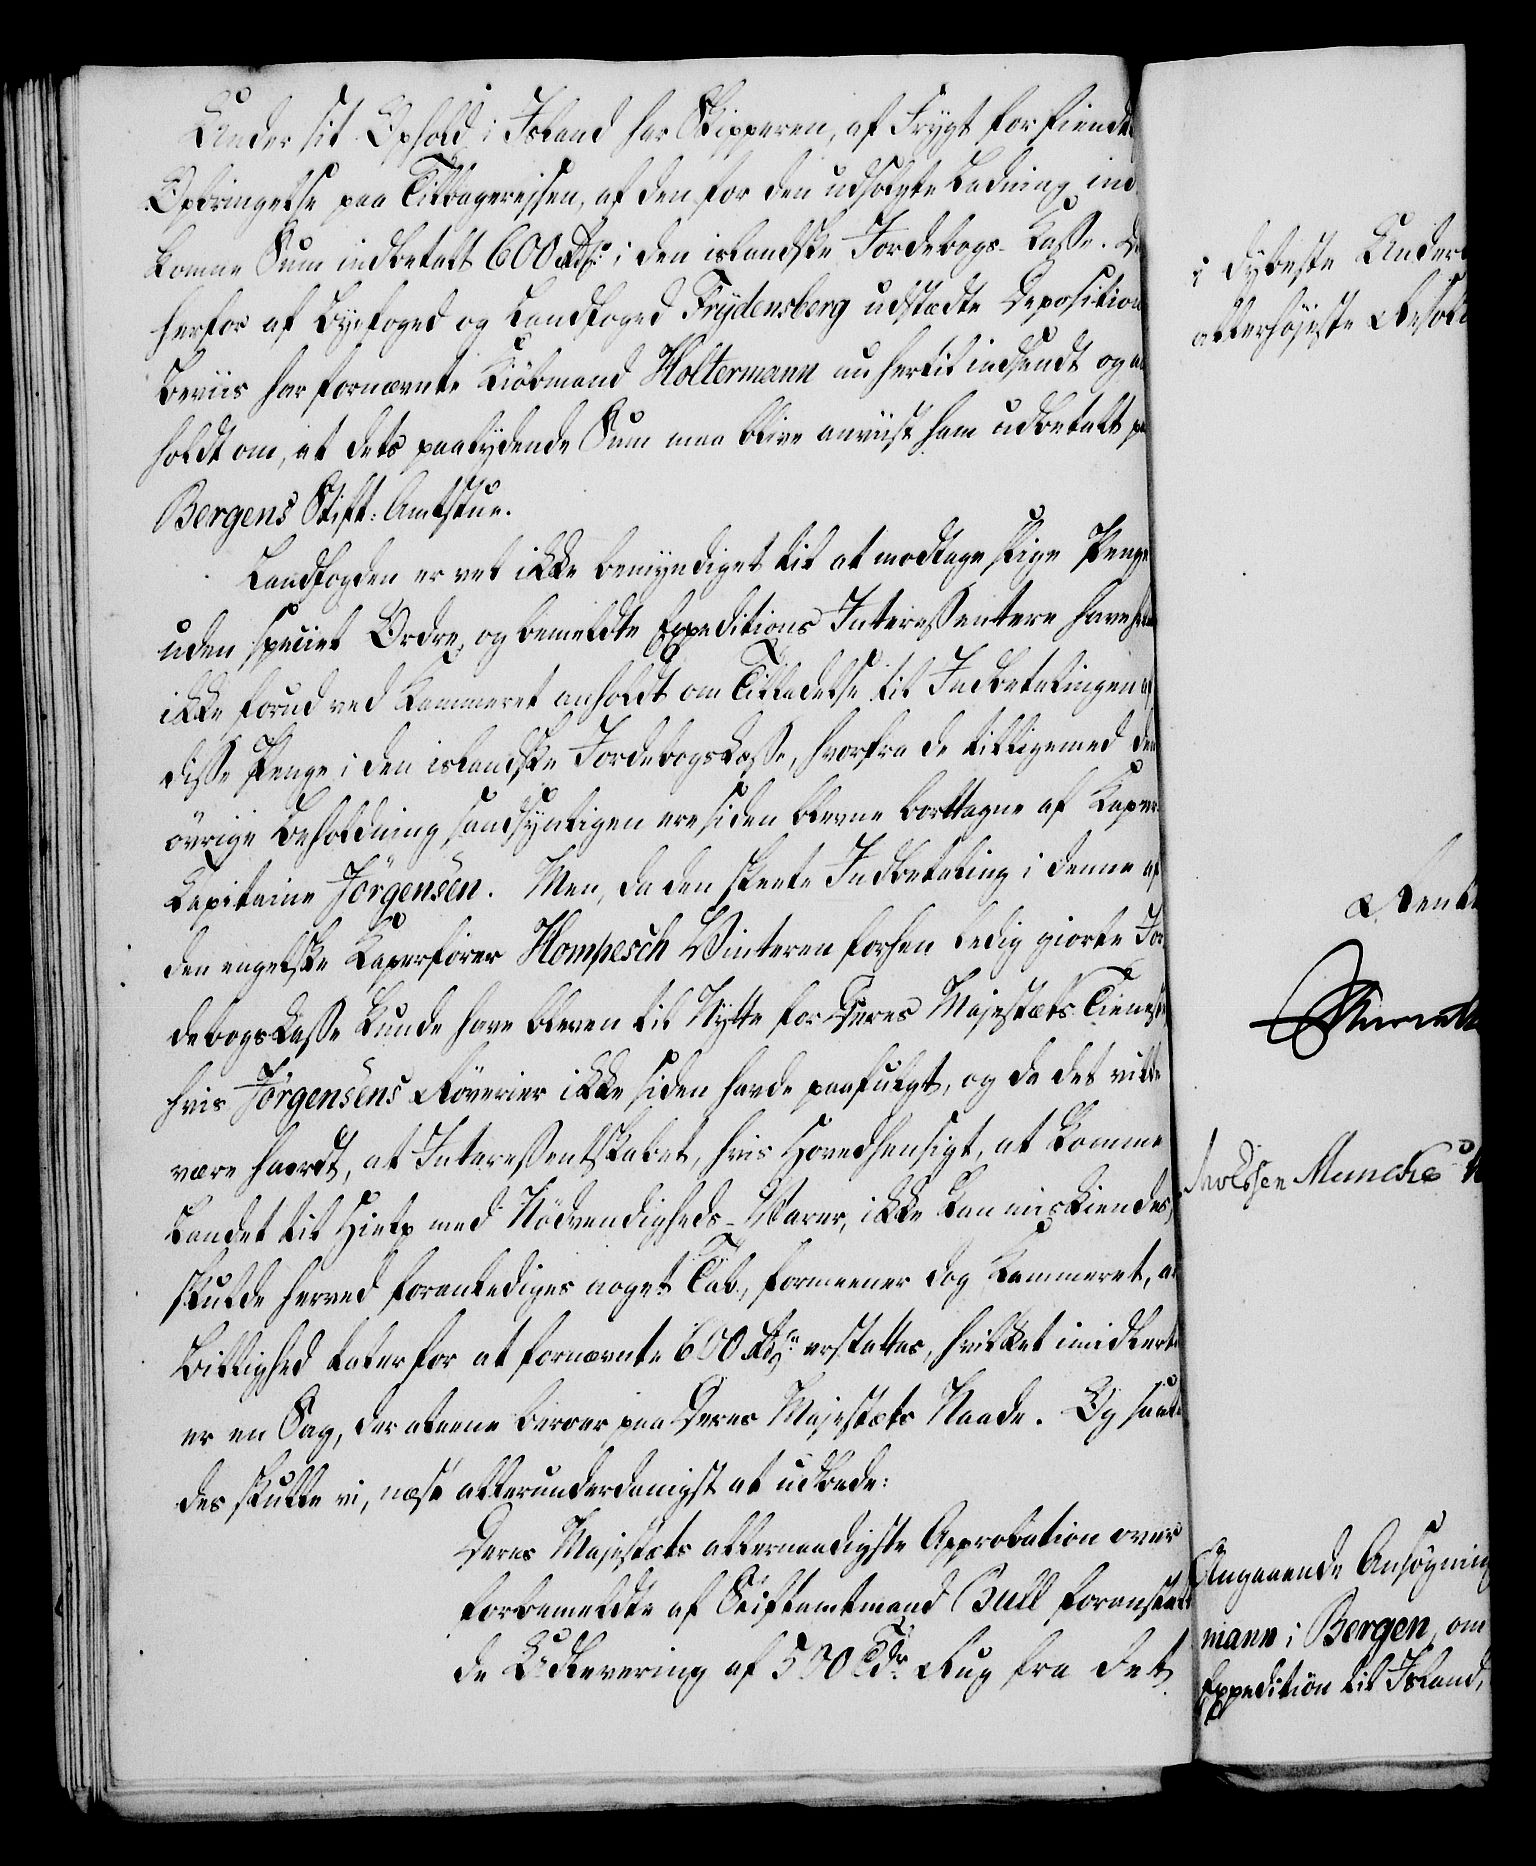 Under sit Ophold i Island har Skipperen, af Frygt for fiendt
Opbringelse paa Tilbagereisen, af den for den udsolgte Ladning ind
komne Sum indbetalt 600 Rdr i den islandske Jordebogs-Kasse. De
herfor af Byefoged og Landfoged Frydensberg udstædte Deposition
Beviis har fornævnte Kiöbmand Holtermann nu hertil indsendt og an
holdt om, at dets paalydende Sum maa blive anviist ham udbetalt p
Bergens Stift: Amtstue.
Landfogden er vel ikke bemyndiget til at modtage slige Penge
uden speciel Ordre, og bemeldte Expeditions Interessentere have
ikke forud ved Kammeret anholdt om Tilladelse til Indbetalingen af
disse Penge i den islandske Jordebogskasse, hvorfra de tilligemed den
övrige Beholdning, sandsynligen ere siden blevne borttagne af Kaper
Capitaine Jörgensen. Men, da den skeete Indbetaling i denne af
den engelske Kaperförer Hompesch Vinteren forhen ledig giorte Jor
debogskasse kunde have bleven til Nytte for Deres Majestæts Tieneste
hvis Jörgensens Röverier ikke siden havde paafulgt, og da det vilde
være haardt, at Interessentskabet, hvis Hovedhensigt, at komme
Landet til Hielp med Nödvendigheds-Varer, ikke kan miskiendes,
skulde herved foranlediges noget Tab, formeener dog Kammeret, at
Billighed taler for at fornævnte 600 Rdr erstattes, hvilket imidlert
er en Sag, der aleene beroer paa Deres Majestæts Naade. Og saale
des skulle vi, næst allerunderdanigst at udbede:
Deres Majestæts allernaadigste Approbation over
forbemeldte af Stiftamtmand Bull foranstalte
de Udlevering af 500 Tdr Rug fra det
i dybeste Under
allerhöjeste Resolu
Rente
Knoblsen Munch
Angaaende Ansögning
mann i Bergen, om
Expedition til Island,